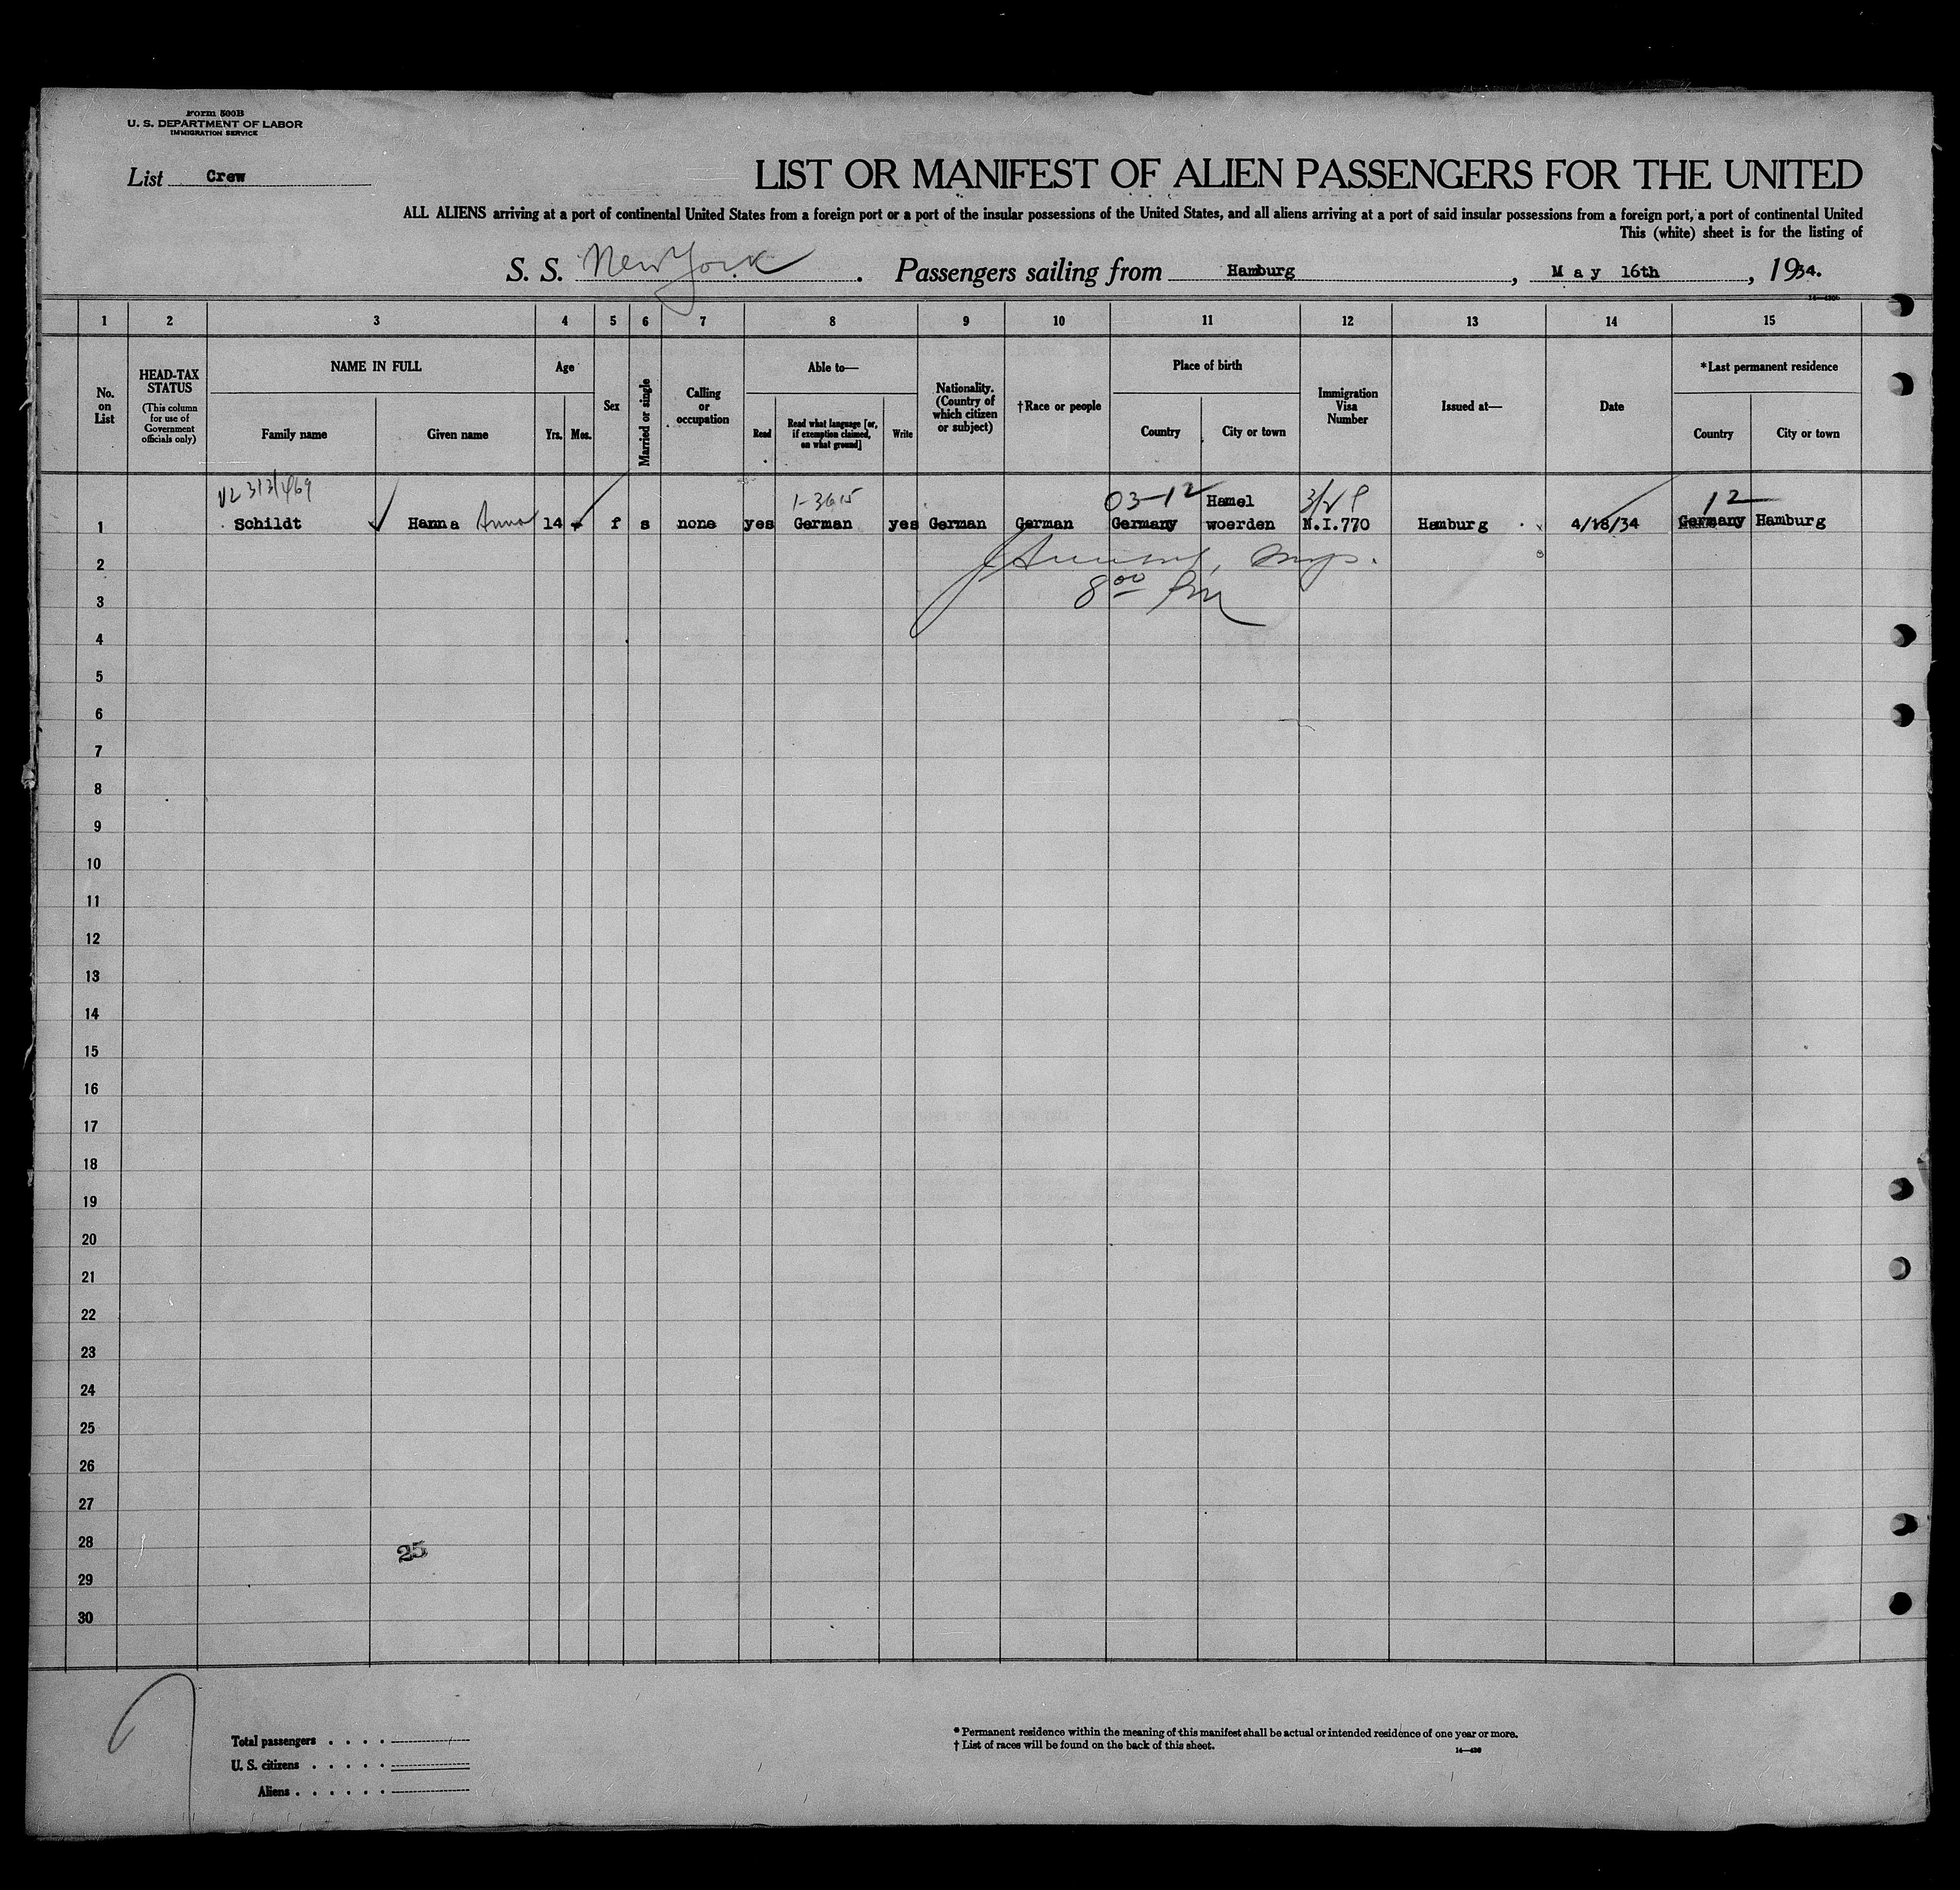 Form 500B
U. S. DEPARTMENT OF LABOR
IMMIGRATION SERVICE
List Crew
LIST OR MANIFEST OF ALIEN PASSENGERS FOR THE UNITED
ALL ALIENS arriving at a port of continental United States from a foreign port or a port of the insular possessions of the United States, and all aliens arriving at a port of said insular possessions from a foreign port, a port of continental United
This (white) sheet is for the listing of
S. S. New York. Passengers sailing from Hamburg, May 16th, 1934.
1 2 3 4 5 6 7 8 9 10 11 12 13 14 15
No. on List
HEAD-TAX STATUS
(This column for use of Government officials only)
NAME IN FULL
Family name
Given name
Age
Yrs. Mos.
Sex
Married or single
Calling or occupation
Able to—
Read
Read what language [or, if exemption claimed, on what ground]
Write
Nationality. (Country of which citizen or subject)
†Race or people
Place of birth
Country
City or town
Immigration Visa Number
Issued at—
Date
*Last permanent residence
Country
City or town
V2 313/469 1-3615 03-12 Hamel 12
1 Schildt Hanna Anna 14 f s none yes German yes German German Germany woerden N.I.770 Hamburg 4/18/34 Germany Hamburg
2
8 00 PM
3
4
5
6
7
8
9
10
11
12
13
14
15
16
17
18
19
20
21
22
23
24
25
26
27
28
25
29
30
Total passengers . . . .
U. S. citizens . . . . .
Aliens . . . . . .
* Permanent residence within the meaning of this manifest shall be actual or intended residence of one year or more.
† List of races will be found on the back of this sheet.
14—430